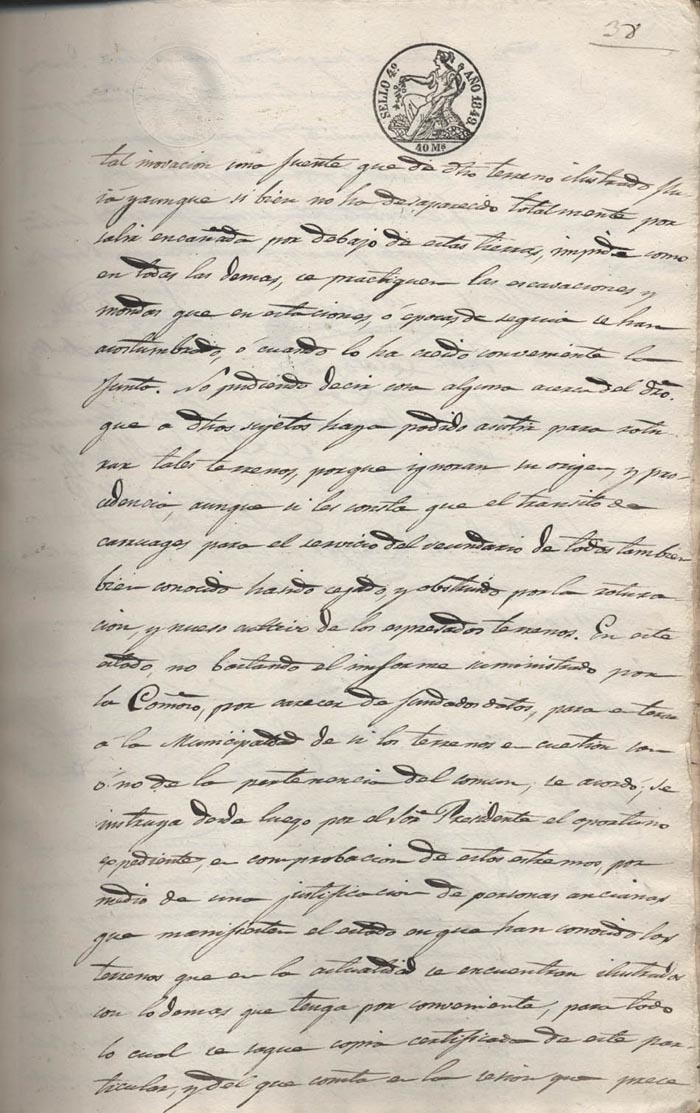 38
SELLO 4º AÑO 1849
40 Ms
tal inovacion una fuente que de dho terreno ilustrado flu
ia y aunque si bien no ha desaparecido totalmente por
salir encañada por debajo de estas tierras, impide como
en todas las demas, se practiquen las escavaciones y
mondas que en estaciones, ó épocas de sequia se han
acostumbrado, ó cuando lo ha creido conveniente la
Junta. No pudiendo decir cosa alguna acerca del dro.
que a dhos sujetos haya podido asistir para rotu
rar tales terrenos, porque ignoran su origen, y pro-
cedencia, aunque si les consta que el transito de
carruages para el servicio del secundario de todos tambien
bien conocido ha sido cejado, y obstruido por la rotura
cion, y nuevo de los espresados terrenos. En este
estado, no bastando el informe suministrado por
la Comon, por carecer de fundados datos, para enterar
á la Municipalidad de si los terrenos en cuestion son
ó no de la pertenencia del comun, se acordó; se
instruya desde luego por el Sor Presidente el oportuno
espediente, en comprobacion de estos estremos, por
medio de una justificacion de personas ancianas
que manifiesten el estado en que han conocido los
terrenos que en la actualidad se encuentran ilustrados
con lo demas que tenga por conveniente, para todo
lo cual se saque copia certificada de este par
ticular, y del que consta en la sesion que prece